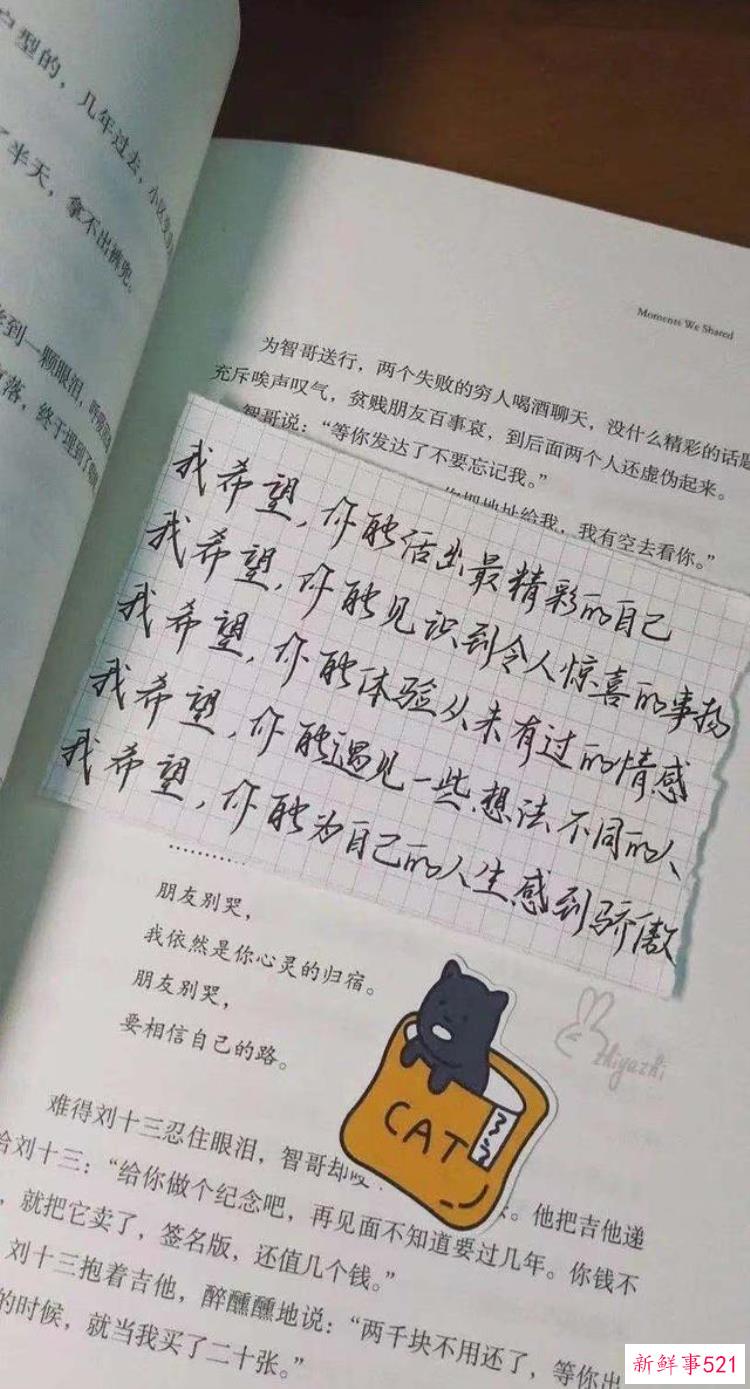 户型的，几年过去，小区
了半天，拿不出裤兜。
到一颗眼泪，
落，终于埋到了
Moments We Shared
为智哥送行，两个失败的穷人喝酒聊天，没什么精彩的话题
充斥唉声叹气，贫贱朋友百事哀，到后面两个人还虚伪起来。
智哥说：“等你发达了不要忘记我。”
把地址给我，我有空去看你。”
我希望，你能活出最精彩的自己
我希望，你能见识到令人惊喜的事物
我希望，你能体验从未有过的情感
我希望，你能遇见一些想法不同的人
我希望，你能为自己的人生感到骄傲
…………
朋友别哭，
我依然是你心灵的归宿。
朋友别哭，
要相信自己的路。
zhiyazhi
CAT
难得刘十三忍住眼泪，智哥却
。他把吉他递
给刘十三：“给你做个纪念吧，再见面不知道要过几年。你钱不
，就把它卖了，签名版，还值几个钱。”
刘十三抱着吉他，醉醺醺地说：“两千块不用还了，等你出
的时候，就当我买了二十张。”
新鲜事521